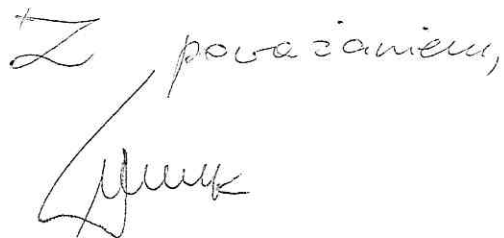 Z poważaniem,